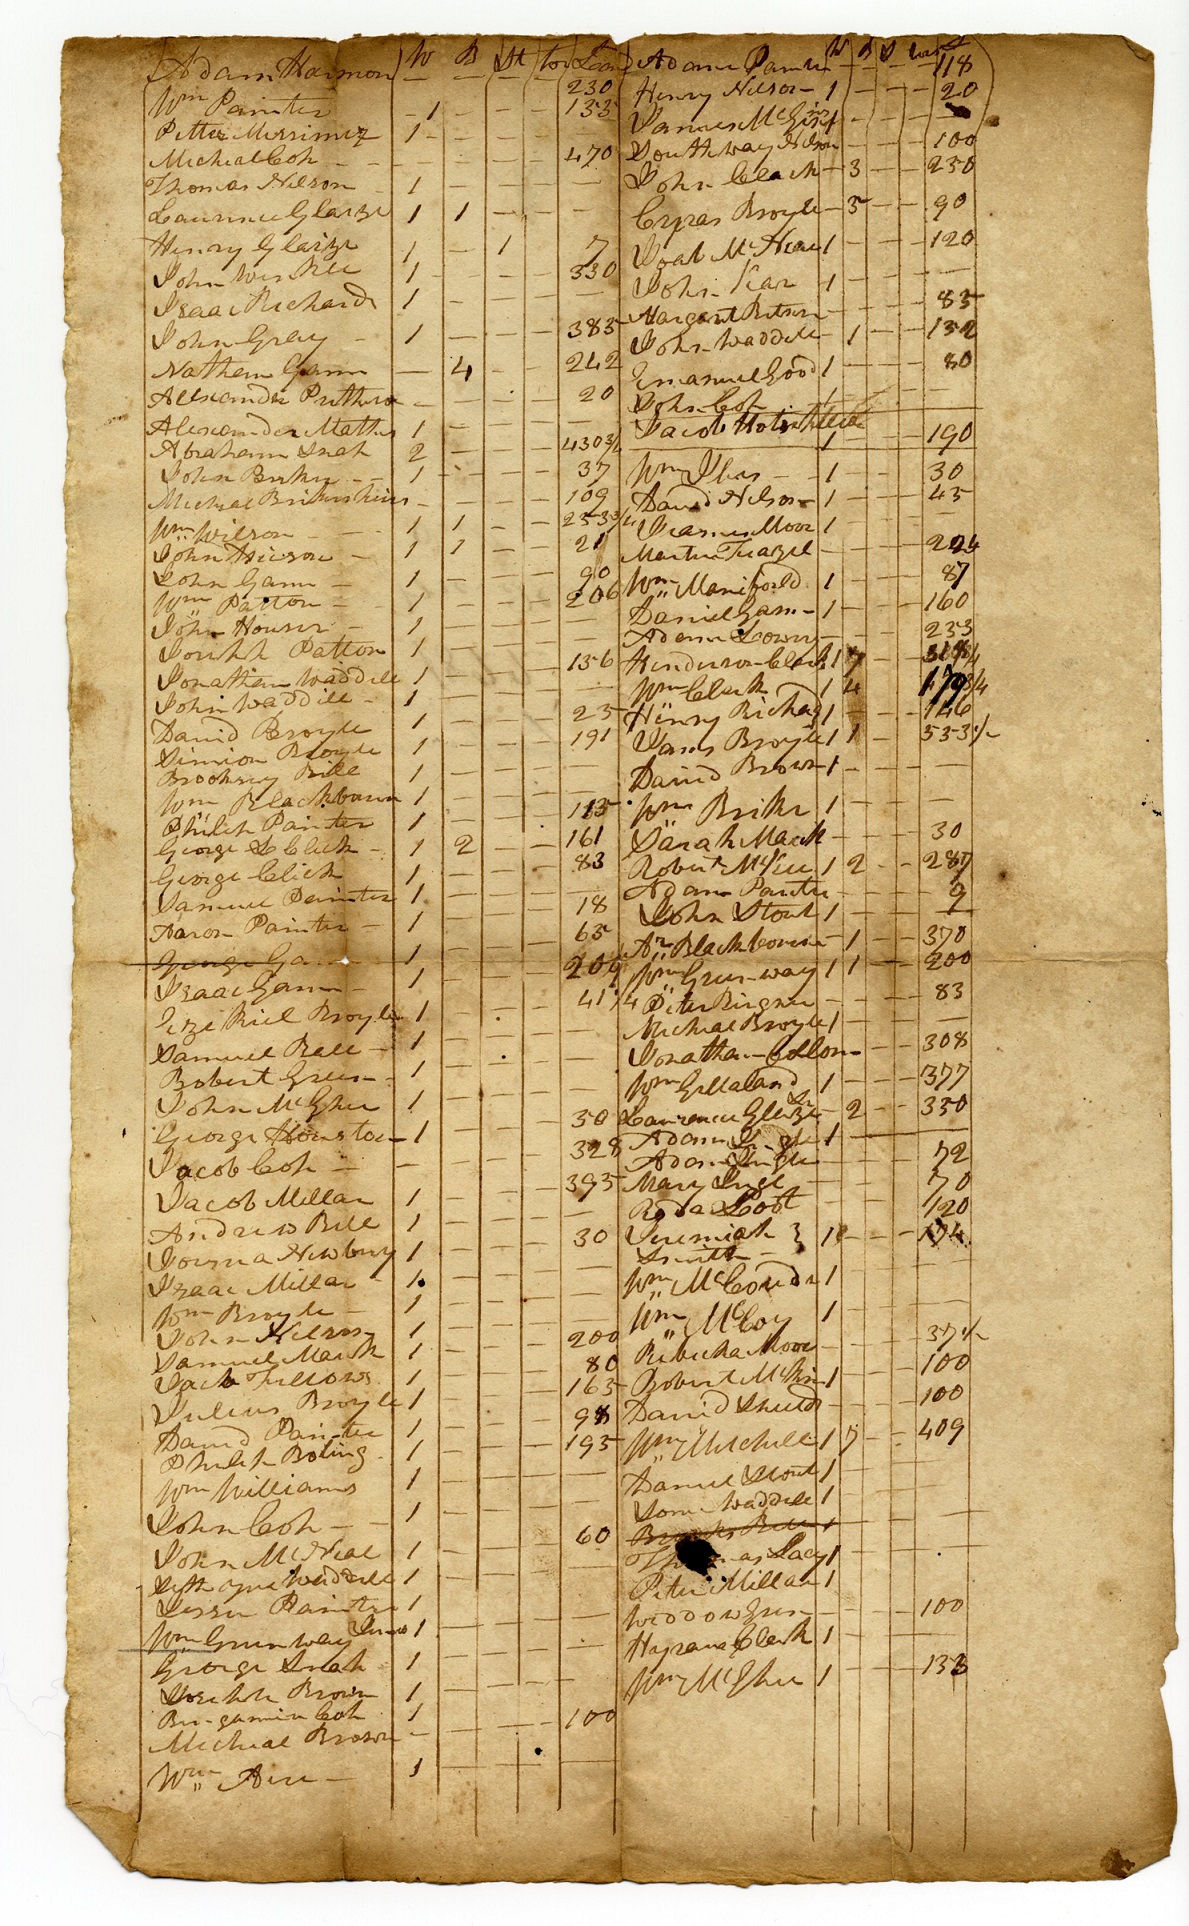 W B St Lots Land
Adam Harmon — — — — 230
Wm Painter — 1 — — 133
Peter Merrimez 1 — — — —
Michial Cob — — — — 470
Thomas Nelson 1 — — — —
Laurence Glaize 1 1 — — —
Henry Glaize 1 — 1 — 7
John Wes Bell 1 — — — 330
Isaac Richards 1 — — — —
John Gray 1 — — — 383
Nathan Gann — 4 — — 242
Alexander — — — — 20
Alexander Mathis 1 — — — —
Abraham 2 — — — 430 3/4
John 1 — — — 37
Michial — — — — 109
Wm Wilson 1 1 — — 253 3/4
John 1 1 — — 21
John Gann 1 — — — 90
Wm Patton 1 — — — 206
John Houser 1 — — — —
Joseph Patton 1 — — — 136
Jonathan Waddill 1 — — — —
John Waddill 1 — — — 25
David Broyle 1 — — — 191
Simion Broyle 1 — — — —
Brooksey Bell 1 — — — —
Wm Blackburn 1 — — — 113
Philip Painter 1 — — — 161
George Click 1 2 — — 83
George Click 1 — — — —
Samuel Painter 1 — — — 18
Aaron Painter 1 — — — 63
George Gann — — — — 204
Isaac Gann 1 — — — 41 1/4
Ezekiel Broyle 1 — — — —
Samuel Bell 1 — — — —
Robert Green 1 — — — —
John McGhee 1 — — — 50
George Houston 1 — — — 328
Jacob Cob — — — — 393
Jacob Millar 1 — — — —
Andrew Bell 1 — — — 30
Newbury 1 — — — —
Isaac Millar 1 — — — —
Wm Broyle 1 — — — —
John Nelson 1 — — — 200
Samuel Mark 1 — — — 80
Jacob Fellows 1 — — — 163
Julius Broyle 1 — — — 98
David Painter 1 — — — 193
Philip Boling 1 — — — —
Wm Williams 1 — — — —
John Cob 1 — — — 60
John McNeal 1 — — — —
Waddill 1 — — — —
Jesse Painter 1 — — — —
Wm Greenway 1 — — — —
George 1 — — — —
Joseph Brown 1 — — — —
Benjamin Cob 1 — — — 100
Michial Brown — — — — —
Wm 1 — — — —
W B S Lots
Adam Painter — — — — 118
Henry Nelson 1 — — — 20
James McGhee 1 — — — —
Southway Nelson — — — — 100
John Clack — 3 — — 250
Cyras Broyle — 5 — — 90
Joab McNeal 1 — — — 120
John Kar 1 — — — —
Margaret — — — — 83
John Waddill — 1 — — 132
Emanuel Good 1 — — — 80
John Cob
Jacob 1 — — — 190
Wm Iles 1 — — — 30
David Nelson 1 — — — 45
James Moor 1 — — — —
Martin — — — — 224
Wm Manifold 1 — — — 87
Daniel Gann 1 — — — 160
Adam Lowry — — — — 233
Henderson Clark 1 7 — —
Wm Clark 1 4 — — 179 3/4
Henry Richards 1 — — — 146
James Broyle 1 1 — — 553
David Brown 1 — — — —
Wm 1 — — — —
Sarah Mark — — — — 30
Robert McKee 1 2 — — 287
Adam Painter — — — — 9
John Stout 1 — — — —
Blackbourn — 1 — — 370
Wm Greenway 1 1 — — 200
Peter — — — — 83
Michial Broyle 1 — — — —
Jonathan Collom — — — — 308
Wm Gilleland 1 — — — 377
Laurence Glaize Sr — 2 — — 330
Adam 1 — — — —
Adam Ingle — — — — 72
Mary Ingle — — — — 70
Roda — — — — 120
Jeremiah } 1 — — — 174
Smith
Wm 1 — — — —
Wm McCoy 1 — — — —
Rebecka Moor — — — — 37
Robert 1 — — — 100
David Shields — — — — 100
Wm Mitchell 1 7 — — 409
Daniel Stout 1 — — — —
Waddill 1 — — — —
Bell 1
Thomas Lacy 1 — — — —
Peter Millar 1
Widdow Green — — — — 100
Clark 1 — — — —
Wm McGhee 1 — — — 133